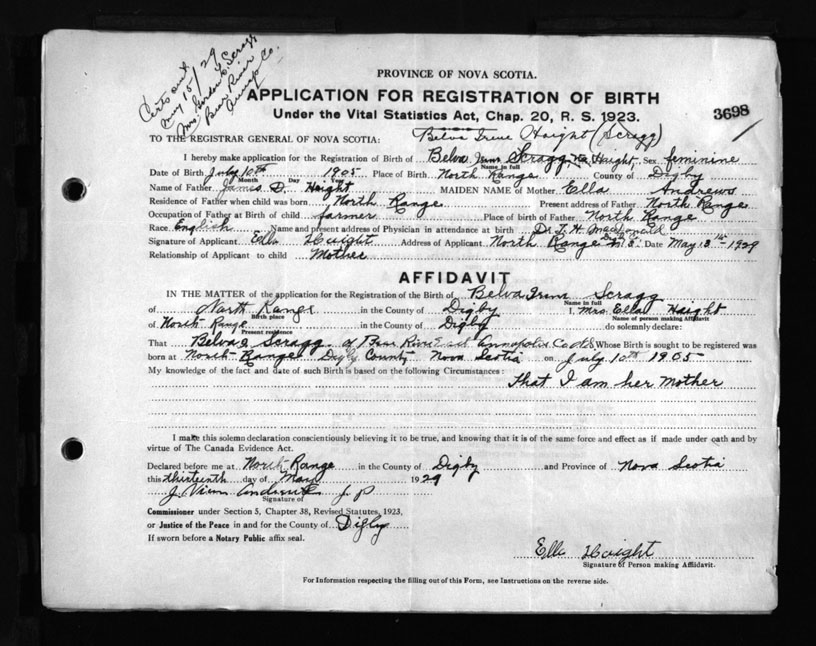 Certs sent
May 15/29
Mrs Gordon C. Scragg
Bear River
Annap Co.
PROVINCE OF NOVA SCOTIA.
APPLICATION FOR REGISTRATION OF BIRTH
Under the Vital Statistics Act, Chap. 20, R. S. 1923.
3698
TO THE REGISTRAR GENERAL OF NOVA SCOTIA: Belva Irene Haight (Scragg)
I hereby make application for the Registration of Birth of Belva Irene Scragg née Haight Sex feminine
Name in full
Date of Birth July 10th 1905 Place of Birth North Range County of Digby
Month Day Year
Name of Father James D. Haight MAIDEN NAME of Mother Ella Andrews
Residence of Father when child was born North Range Present address of Father North Range
Occupation of Father at Birth of child farmer Place of birth of Father North Range
Race English Name and present address of Physician in attendance at birth Dr. J. H. MacDonald
Signature of Applicant Ella Haight Address of Applicant North Range N.S. Date May 13th 1929
Relationship of Applicant to child Mother
AFFIDAVIT
IN THE MATTER of the application for the Registration of the Birth of Belva Irene Scragg
Name in full
of North Range in the County of Digby I, Mrs. Ella Haight
Birth place Name of person making Affidavit
of North Range in the County of Digby do solemnly declare:
Present residence
That Belva Scragg of Bear River Annapolis Co Whose Birth is sought to be registered was
born at North Range Digby County Nova Scotia on July 10th 1905
My knowledge of the fact and date of such Birth is based on the following Circumstances:
that I am her Mother
I make this solemn declaration conscientiously believing it to be true, and knowing that it is of the same force and effect as if made under oath and by
virtue of The Canada Evidence Act.
Declared before me at North Range in the County of Digby and Province of Nova Scotia
this thirteenth day of May 1929
J. Andrews J. P
Signature of
Commissioner under Section 5, Chapter 38, Revised Statutes, 1923,
or Justice of the Peace in and for the County of Digby
If sworn before a Notary Public affix seal.
Ella Haight
Signature of Person making Affidavit.
For Information respecting the filling out of this Form, see Instructions on the reverse side.